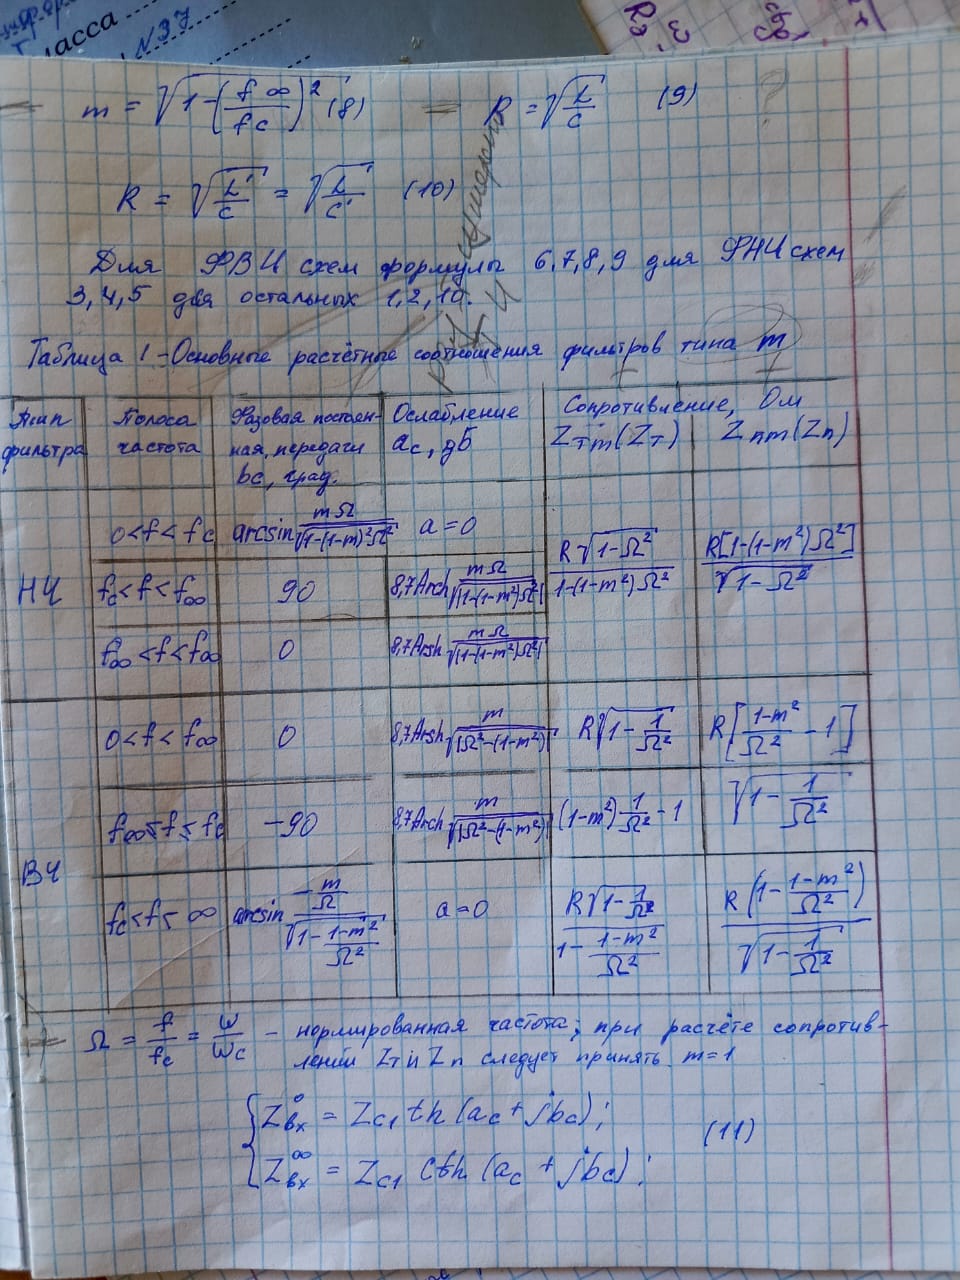 класса
№37
m = √(1-(f∞/fc)²) (8) R = √(L/C) (9)
R = √(L'/C) = √(L/C') (10)
Для ФВЧ схем формулы 6,7,8,9 для ФНЧ схем
3,4,5 для остальных 1,2,10.
Таблица 1 - Основные расчётные соотношения фильтров типа m
Тип фильтра | Полоса частота | Фазовая постоянная, передачи bc, град. | Ослабление ac, дБ | Сопротивление, Ом
ZTm(ZT) | Zпm(Zп)
НЧ
0<f<fc | arcsin mΩ/√(1-(1-m)²Ω²) | a=0 | R√(1-Ω²)/(1-(1-m²)Ω²) | R[1-(1-m²)Ω²]/√(1-Ω²)
fc<f<f∞ | 90 | 8,7Arch mΩ/√|1-(1-m²)Ω²|
f∞<f<f∞ | 0 | 8,7Arsh mΩ/√|1-(1-m²)Ω²|
ВЧ
0<f<f∞ | 0 | 8,7Arsh m/√|Ω²-(1-m²)| | R√(1-1/Ω²) | R[(1-m²)/Ω² - 1]
f∞≤f≤fc | -90 | 8,7Arch m/√|Ω²-(1-m²)| | (1-m²)1/Ω² - 1 | √(1-1/Ω²)
fc<f<∞ | arcsin (-m/Ω)/√(1-(1-m²)/Ω²) | a=0 | R√(1-1/Ω²)/(1-(1-m²)/Ω²) | R(1-(1-m²)/Ω²)/√(1-1/Ω²)
Ω = f/fc = ω/ωc - нормированная частота; при расчёте сопротив-
лений ZT и Zп следует принять m=1
{Z⁰вх = Zc1 th(ac+jbc);
(11)
{Z∞вх = Zc1 cth(ac+jbc);